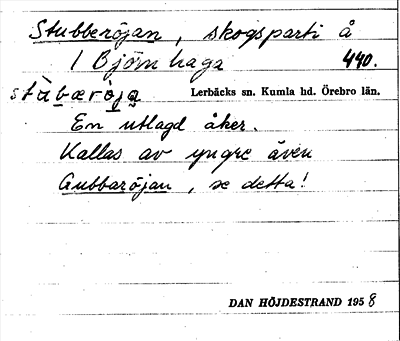 Stubberöjan, skogsparti å
1 Björnhaga 440.
stùbæròja Lerbäcks sn. Kumla hd. Örebro län.
En utlagd åker.
Kallas av yngre även
Gubbaröjan, se detta!
DAN HÖJDESTRAND 1958